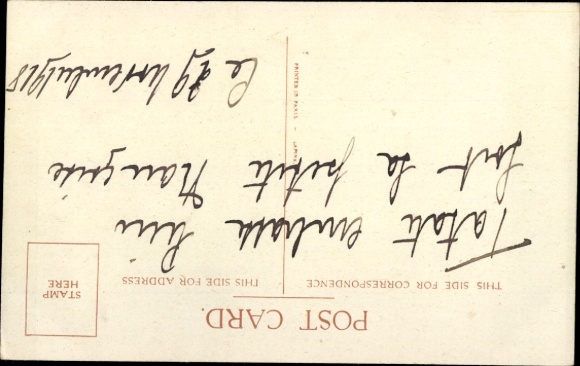 POST CARD.
THIS SIDE FOR CORRESPONDENCE
THIS SIDE FOR ADDRESS
STAMP
HERE
Tatati embrasse bien
fort la petite Françoise
PRINTED IN PARIS
Le 29 Novembre 1918